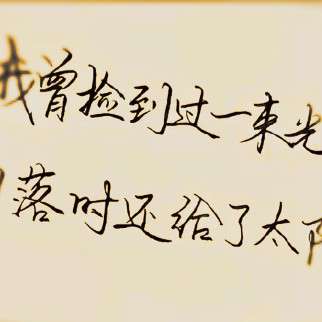 我曾捡到过一束光
落时还给了太阳